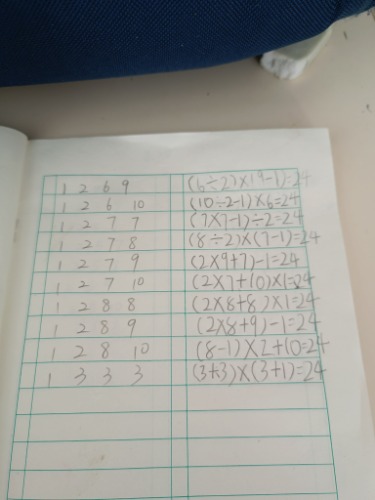 1 2 6 9 (6÷2)×(9-1)=24
1 2 6 10 (10÷2-1)×6=24
1 2 7 7 (7×7-1)÷2=24
1 2 7 8 (8÷2)×(7-1)=24
1 2 7 9 (2×9+7)-1=24
1 2 7 10 (2×7+10)×1=24
1 2 8 8 (2×8+8)×1=24
1 2 8 9 (2×8+9)-1=24
1 2 8 10 (8-1)×2+10=24
1 3 3 3 (3+3)×(3+1)=24